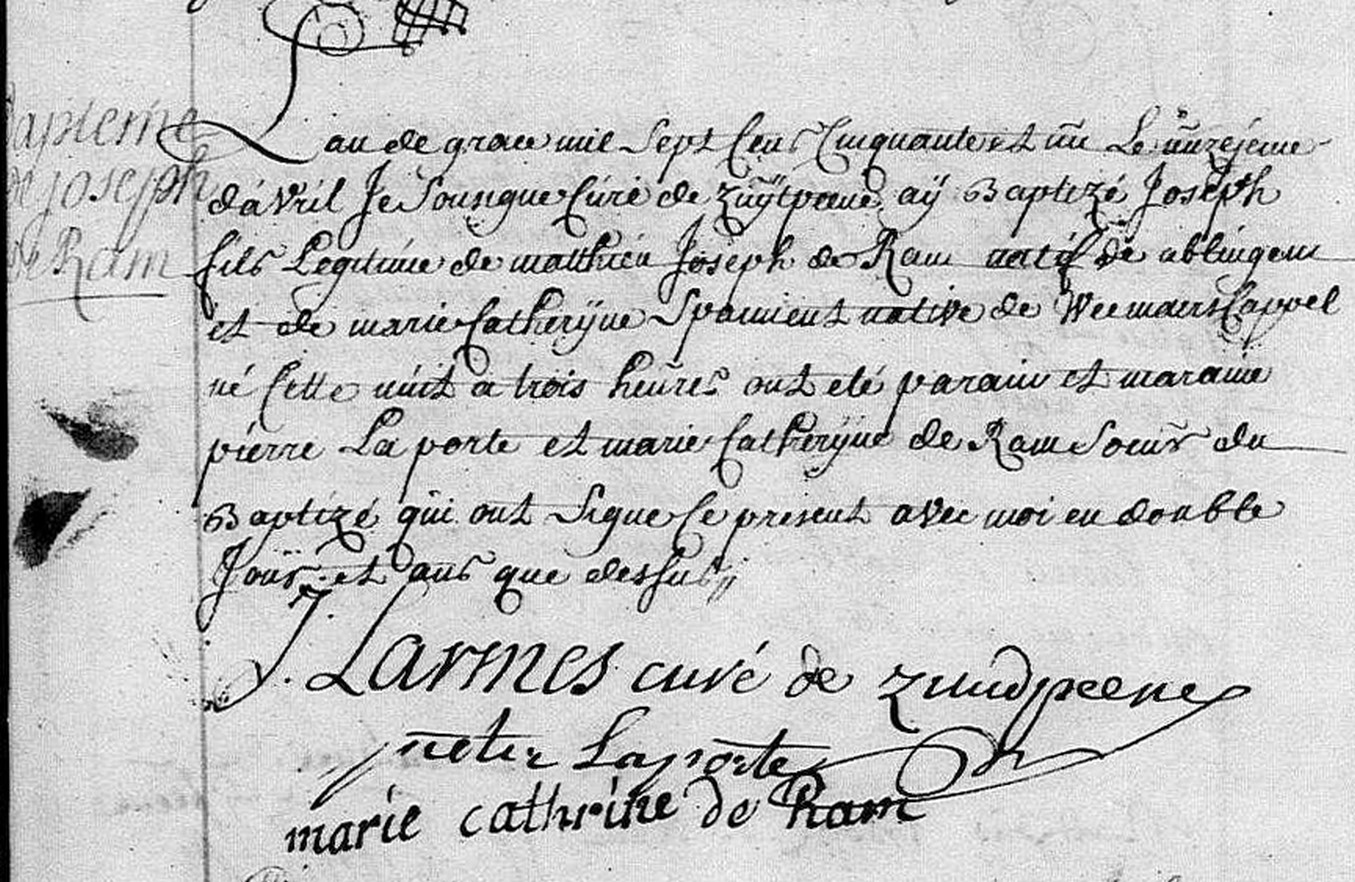 Bapteme
de joseph
de Ram
Lan de grace mil Sept Cens Cinquante et un Le unzejeme
davril Je Sousigne Curé de Zuÿtpeene aÿ Baptizé Joseph
fils Legitime de matthieu Joseph de Ram natif de
et de marie Catherÿne native de Weemaers Cappel
né Cette nuit a trois heures ont eté parain et maraine
pierre La porte et marie Catherÿne de Ram Soeur du
Baptizé qui ont Signe Ce present avec moi en double
Jour et ans que dessus
J. Larmes curé de zuudpeene
pieter Laporte
marie cathrine de Ram